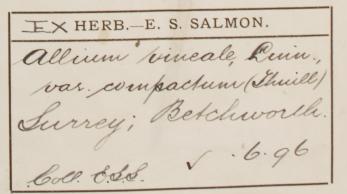 EX HERB.—E. S. SALMON.
Allium vineale, Linn.,
var. compactum (Thuill)
Surrey; Betchworth.
✓ .6.96
Coll. E.S.S.